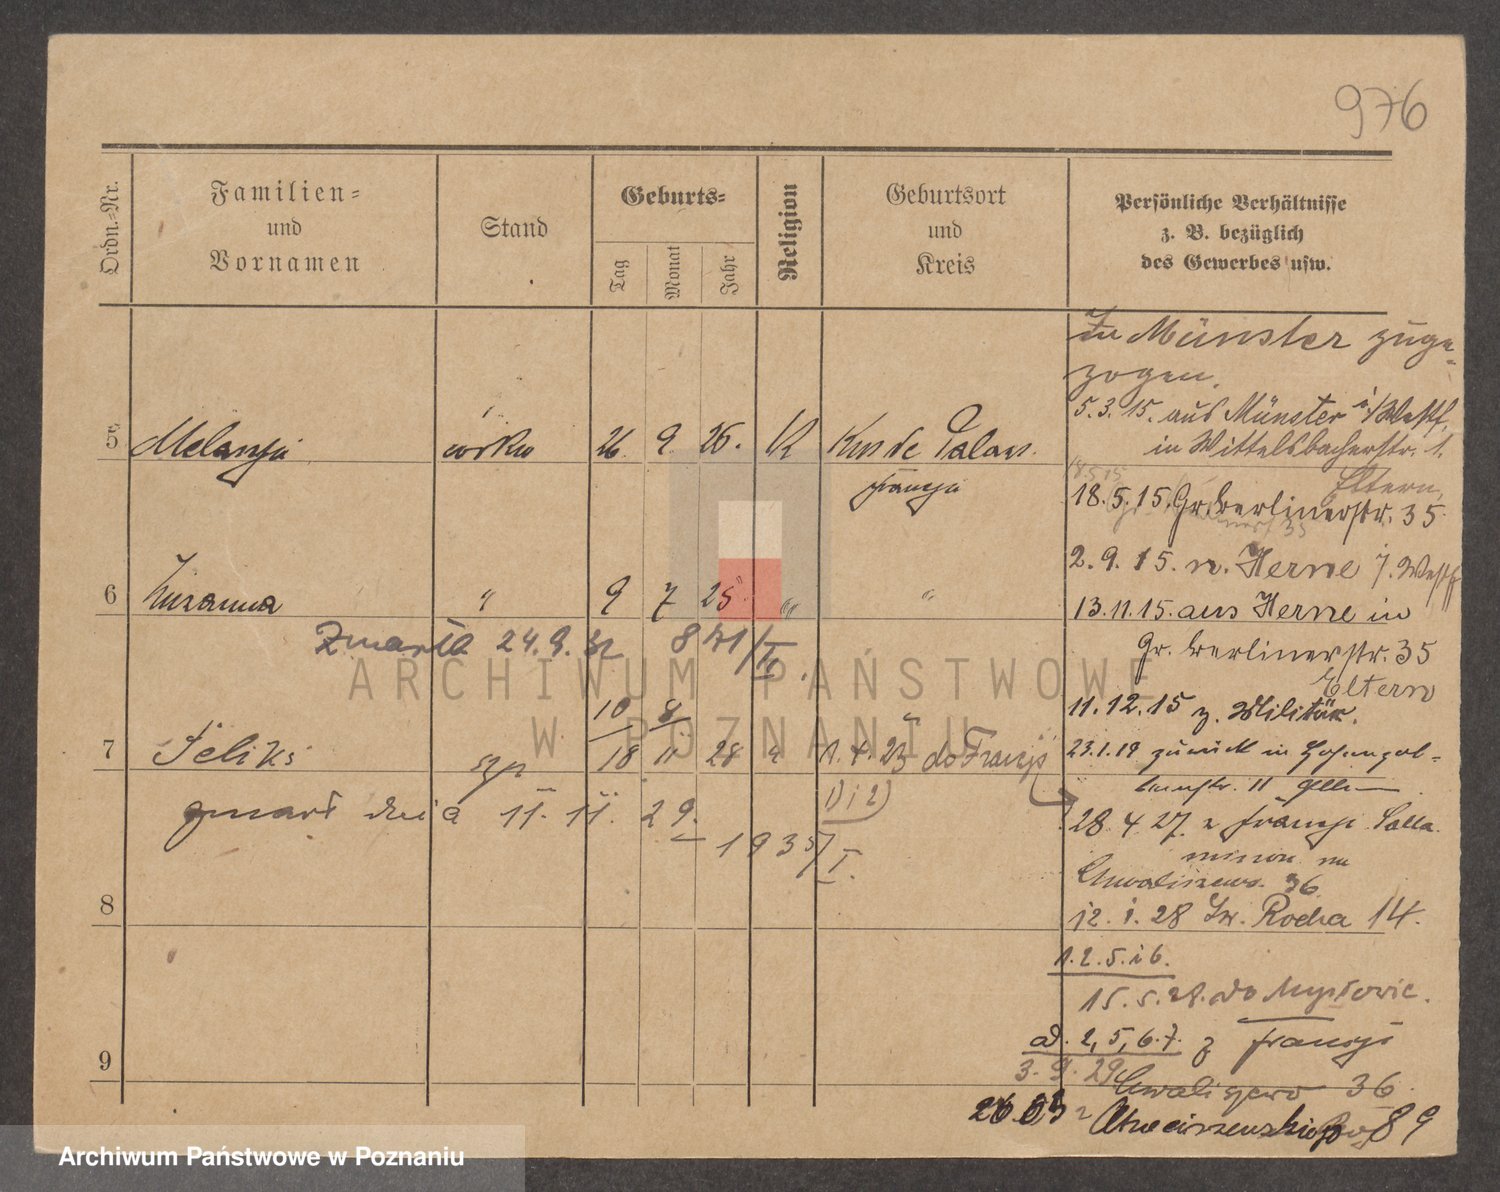 976
Ordn.=Nr.
Familien=
und
Vornamen
Stand
Geburts=
Tag
Monat
Jahr
Religion
Geburtsort
und
Kreis
Persönliche Verhältnisse
z. B. bezüglich
des Gewerbes usw.
In Münster zuge-
zogen.
5.3.15. aus Münster i/Westf.
in Wittelsbacherstr. 1.
Eltern,
5 Melanja córka 26. 9. 26. K
Francja
18.5.15
18.5.15. Gr. Berlinerstr. 35
2.9.15. n. Herne i. Westf
6 Zuzanna " 9 7 25 " "
13.11.15. aus Herne in
Gr. Berlinerstr. 35
Eltern
Zmarła 24.9.32 871/II.
10 8
11.12.15 z. Militär.
7 Feliks syn 18 11 28 " "
1.4.23 do Francji
1) i 2)
23.1.19 zurück in
11
zmarł dnia 11. 11. 29.
1935/I.
28.4.27. z Francji
Chwaliszewo 36
8
12.1.28 Św. Rocha 14.
1.2.5.i6.
15.5.28. do Mysłowic.
ad. 2, 5, 6.7. z Francji
9
3.9.29 Chwaliszewo 36
89
ARCHIWUM PAŃSTWOWE
W POZNANIU
Archiwum Państwowe w Poznaniu